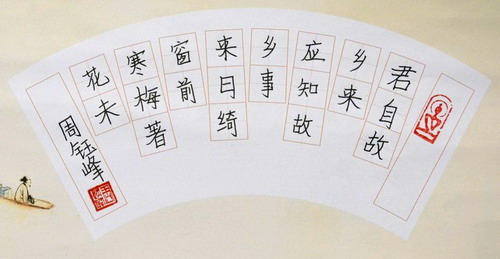 君自故
乡来
应知故
乡事
来日绮
窗前
寒梅著
花未
周钰峰